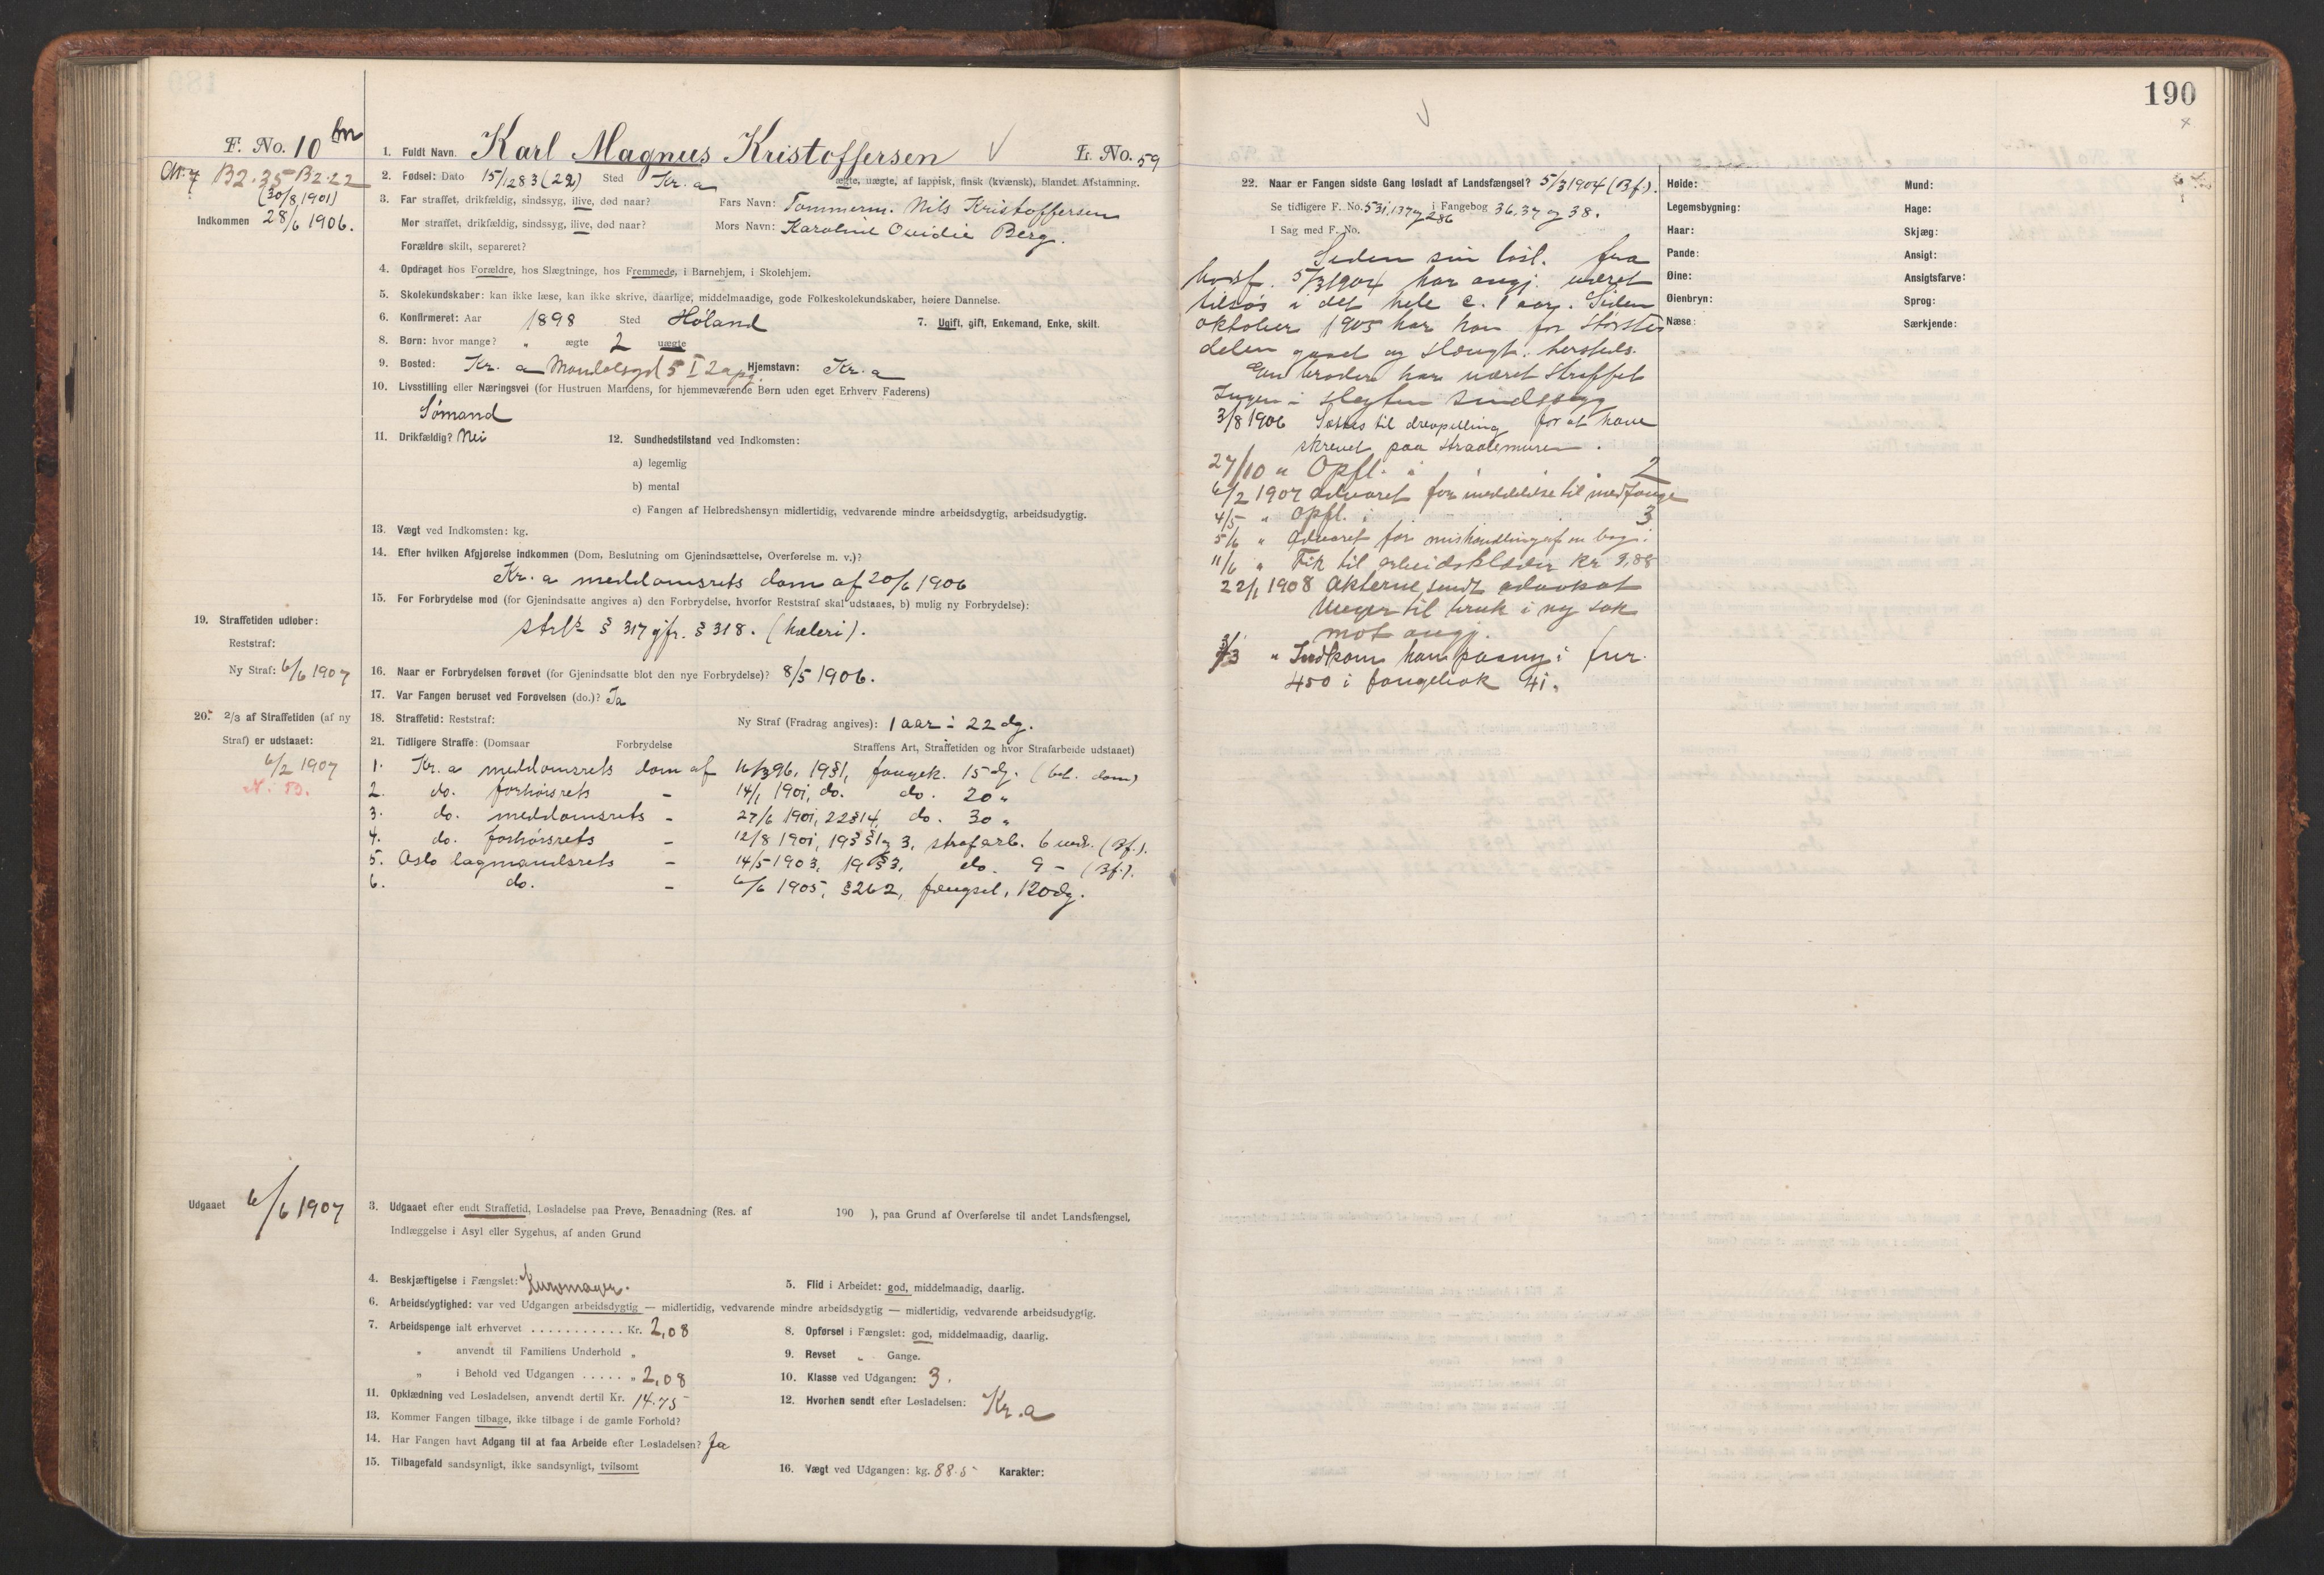 190
F. No. 10
1. Fuldt Navn. Karl Magnus Kristoffersen L. No. 59
B2.35 B2.22
(30/8 1901)
Indkommen 28/6 1906.
2. Fødsel: Dato 15/12 83 (22) Sted Kr.a ægte, uægte, af lappisk, finsk (kvænsk), blandet Afstamning.
3. Far straffet, drikfældig, sindssyg, ilive, død naar? Fars Navn: Tømmerm. Nils Kristoffersen
Mor straffet, drikfældig, sindssyg, ilive, død naar? Mors Navn: Karoline Ovidie Berg.
Forældre skilt, separeret?
4. Opdraget hos Forældre, hos Slægtninge, hos Fremmede, i Barnehjem, i Skolehjem.
5. Skolekundskaber: kan ikke læse, kan ikke skrive, daarlige, middelmaadige, gode Folkeskolekundskaber, høiere Dannelse.
6. Konfirmeret: Aar 1898 Sted Høland 7. Ugift, gift, Enkemand, Enke, skilt.
8. Børn: hvor mange? " ægte 2 uægte
9. Bosted: Kr.a 5 I Hjemstavn: Kr.a
10. Livsstilling eller Næringsvei (for Hustruen Mandens, for hjemmeværende Børn uden eget Erhverv Faderens)
Sømand
11. Drikfældig? Nei 12. Sundhedstilstand ved Indkomsten:
a) legemlig
b) mental
c) Fangen af Helbredshensyn midlertidig, vedvarende mindre arbeidsdygtig, arbeidsudygtig.
13. Vægt ved Indkomsten: kg.
14. Efter hvilken Afgjørelse indkommen (Dom, Beslutning om Gjenindsættelse, Overførelse m. v.)?
Kr.a meddomsrets dom af 20/6 1906
15. For Forbrydelse mod (for Gjenindsatte angives a) den Forbrydelse, hvorfor Reststraf skal udstaaes, b) mulig ny Forbrydelse):
§ 317 jfr. § 318. (hæleri).
19. Straffetiden udløber:
Reststraf:
Ny Straf: 6/6 1907
16. Naar er Forbrydelsen forøvet (for Gjenindsatte blot den nye Forbrydelse)? 8/5 1906.
17. Var Fangen beruset ved Forøvelsen (do.)? Ja
20. 2/3 af Straffetiden (af ny
Straf) er udstaaet:
6/2 1907
N. B.
18. Straffetid: Reststraf: Ny Straf (Fradrag angives): 1 aar ÷ 22 dg.
21. Tidligere Straffe: (Domsaar Forbrydelse Straffens Art, Straffetiden og hvor Strafarbeide udstaaet)
1. Kr.a meddomsrets dom af 16/3 96, 19§1, fængsl. 15 dg. (bet. dom)
2. do. forhørsrets - 14/1 1901, do. do. 20 "
3. do. meddomsrets - 27/6 1901, 22§14, do. 30 "
4. do. forhørsrets - 12/8 1901, 19§§1 3, strafarb. 6 (Bf.).
5. Oslo lagmandsrets - 14/5 1903, 19§3, do. 9 - (Bf.).
6. do. - 6/6 1905, §262, fængsel, 120 dg.
Udgaaet 6/6 1907
3. Udgaaet efter endt Straffetid, Løsladelse paa Prøve, Benaadning (Res. af 190 ), paa Grund af Overførelse til andet Landsfængsel,
Indlæggelse i Asyl eller Sygehus, af anden Grund
4. Beskjæftigelse i Fængslet: Kurvmager. 5. Flid i Arbeidet: god, middelmaadig, daarlig.
6. Arbeidsdygtighed: var ved Udgangen arbeidsdygtig — midlertidig, vedvarende mindre arbeidsdygtig — midlertidig, vedvarende arbeidsudygtig.
7. Arbeidspenge ialt erhvervet ........... Kr. 2,08 8. Opførsel i Fængslet: god, middelmaadig, daarlig.
" anvendt til Familiens Underhold " 9. Revset " Gange.
" i Behold ved Udgangen ..... " 2,08 10. Klasse ved Udgangen: 3.
11. Opklædning ved Løsladelsen, anvendt dertil Kr. 14.75 12. Hvorhen sendt efter Løsladelsen: Kr.a
13. Kommer Fangen tilbage, ikke tilbage i de gamle Forhold?
14. Har Fangen havt Adgang til at faa Arbeide efter Løsladelsen? Ja
15. Tilbagefald sandsynligt, ikke sandsynligt, tvilsomt 16. Vægt ved Udgangen: kg. 88.5 Karakter:
22. Naar er Fangen sidste Gang løsladt af Landsfængsel? 5/3 1904 (Bf.).
Se tidligere F. No. 531, 137 og 286 i Fangebog 36, 37 og 38.
I Sag med F. No.
Siden sin løsl. fra
5/3 1904 har angj. været
tilsjøs i det hele c. 1 aar. Siden
oktober 1905 har han for største
delen gaaet og hersteds.
En broder har været straffet
Ingen i slegten sindssyg
3/8 1906 Sættes til drevpilling for at have
skrevet paa .
27/10 " Opfl. i 2
6/2 1907 Advaret for meddelelse til medfange
4/5 " Opfl. i 3
5/6 " Advaret for mishandling af en bog.
11/6 " Fik til arbeidsklæder Kr 9,88
22/1 1908 Akterne sendt advokat
Meyer til bruk i ny sak
mot angj.
3/3 " Indkom han paany i fnr.
450 i fangebok 41.
Høide:
Legemsbygning:
Haar:
Pande:
Øine:
Øienbryn:
Næse:
Mund:
Hage:
Skjæg:
Ansigt:
Ansigtsfarve:
Sprog:
Særkjende: